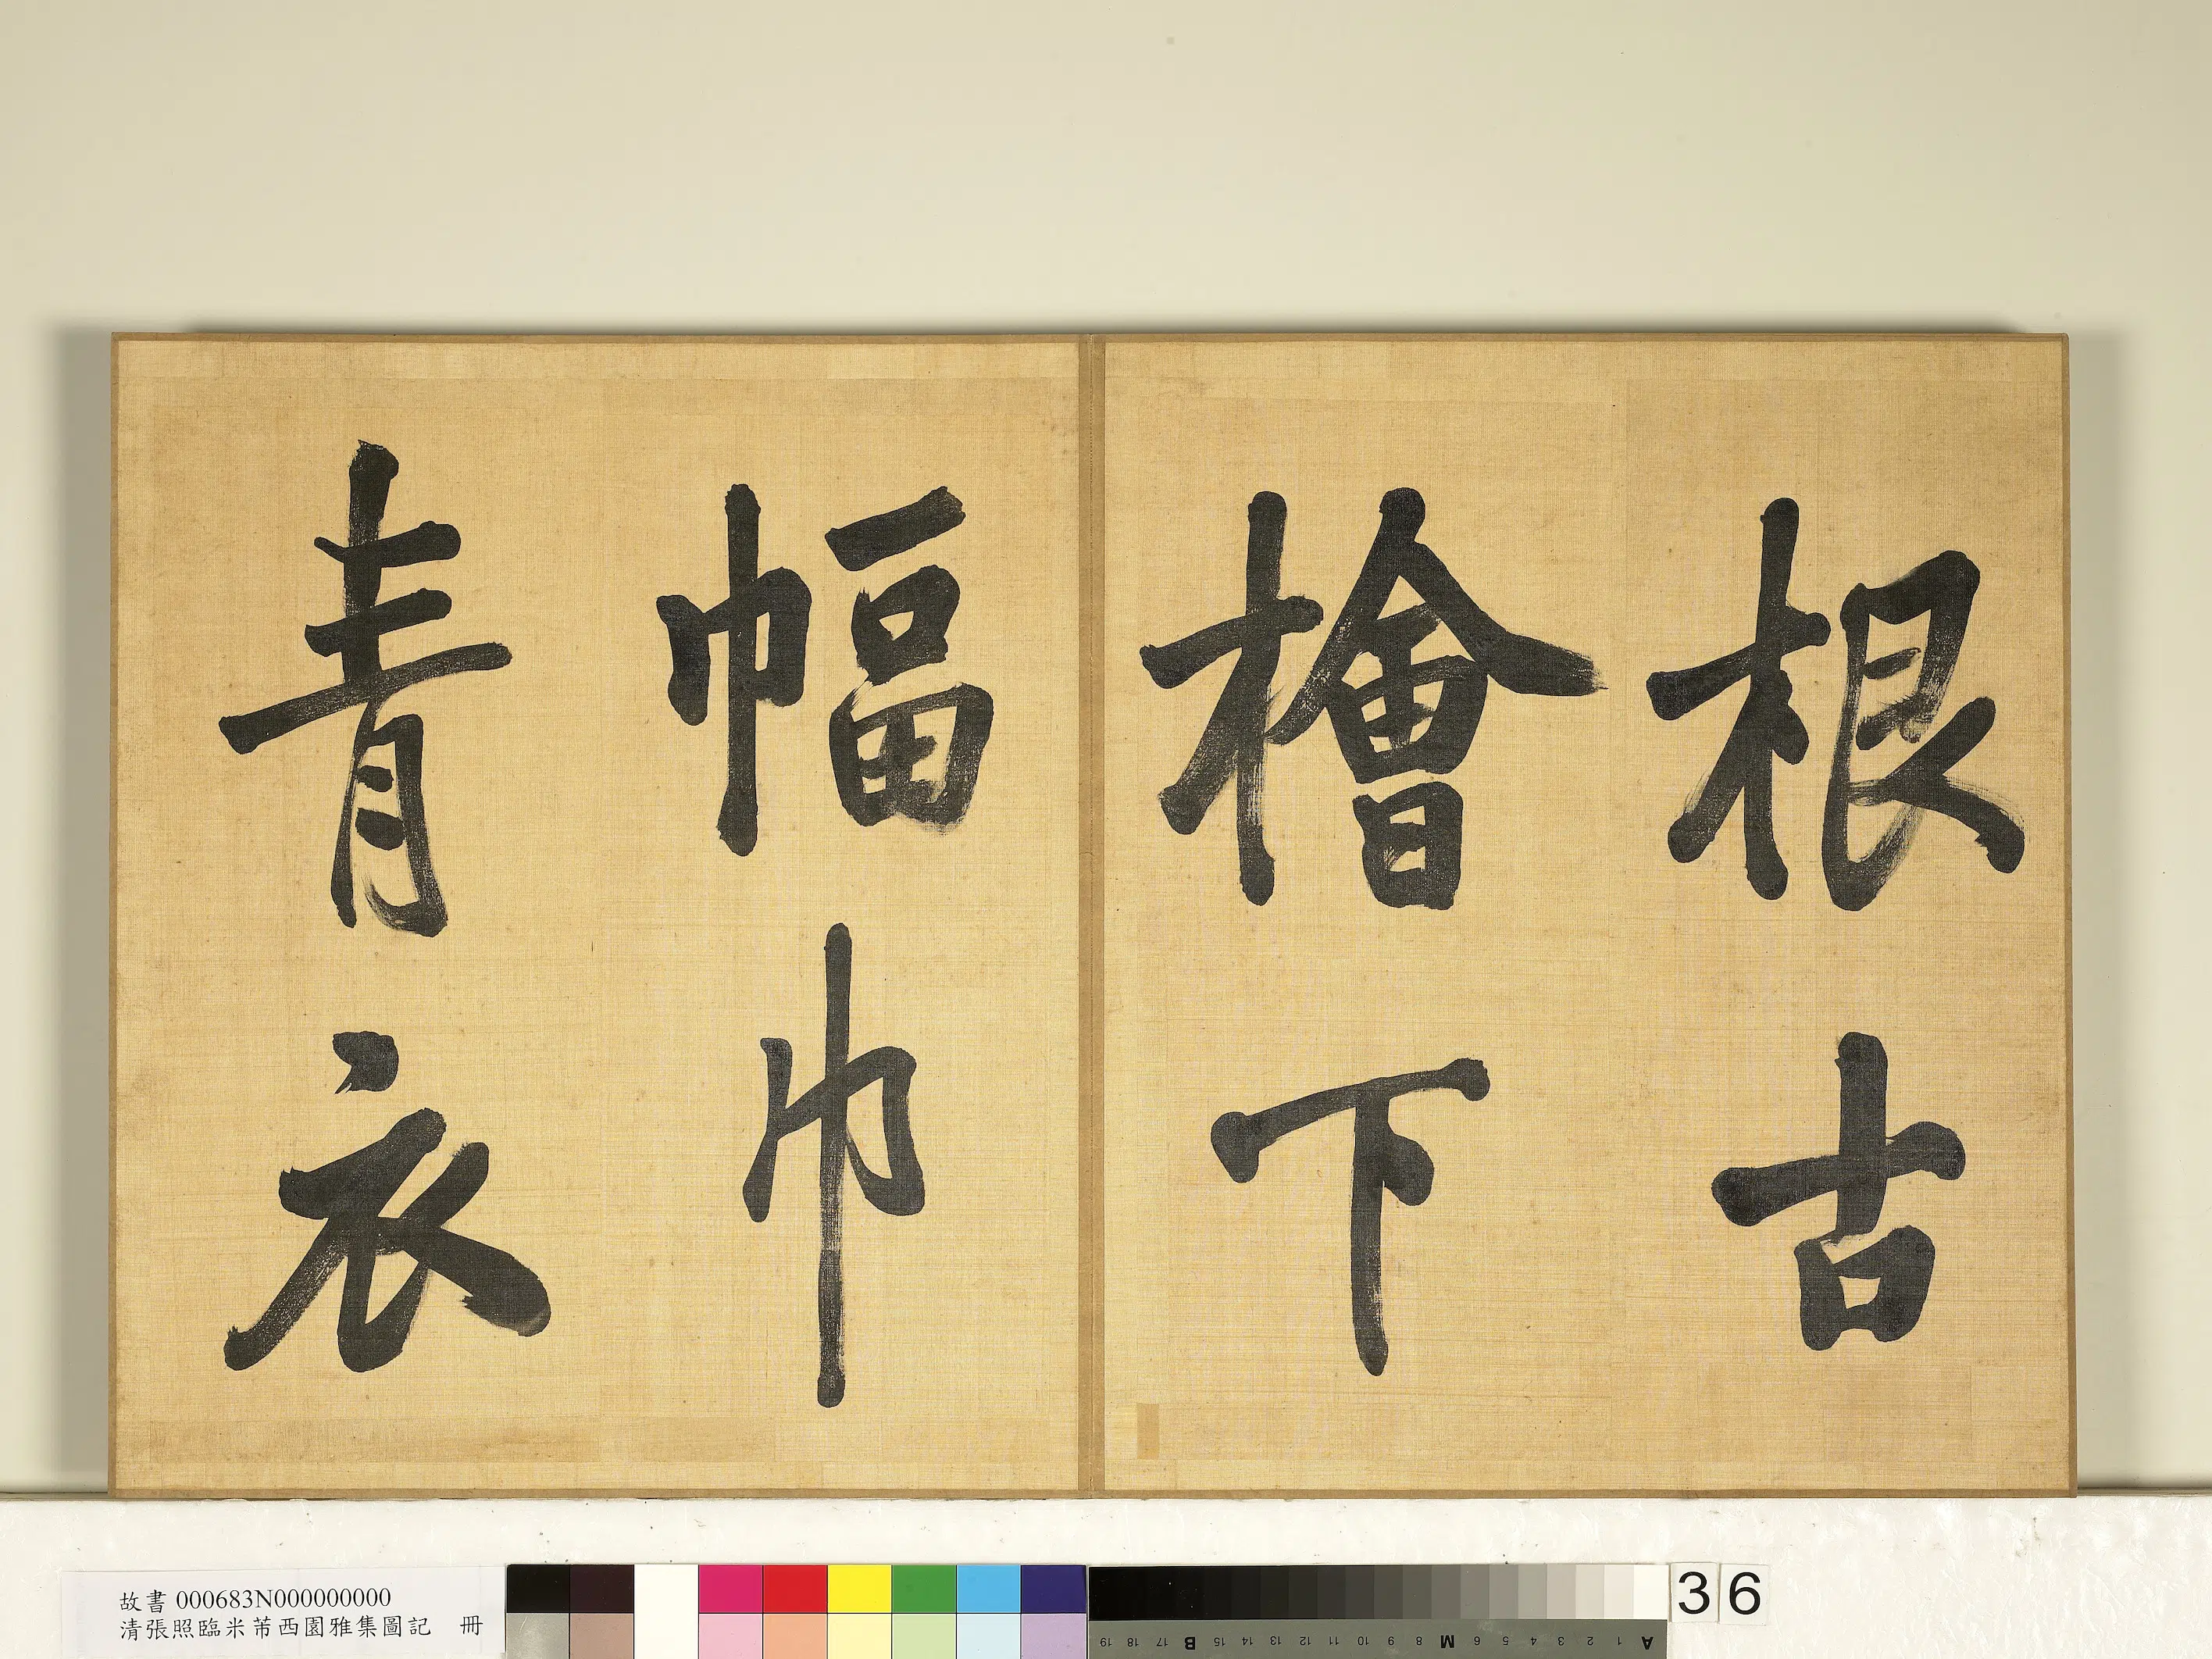 根古
檜下
幅巾
青衣
故書 000683N000000000
清張照臨米芾西園雅集圖記 冊
19 18 17 B 15 14 13 12 11 10 9 8 M 6 5 4 3 2 1 A
36